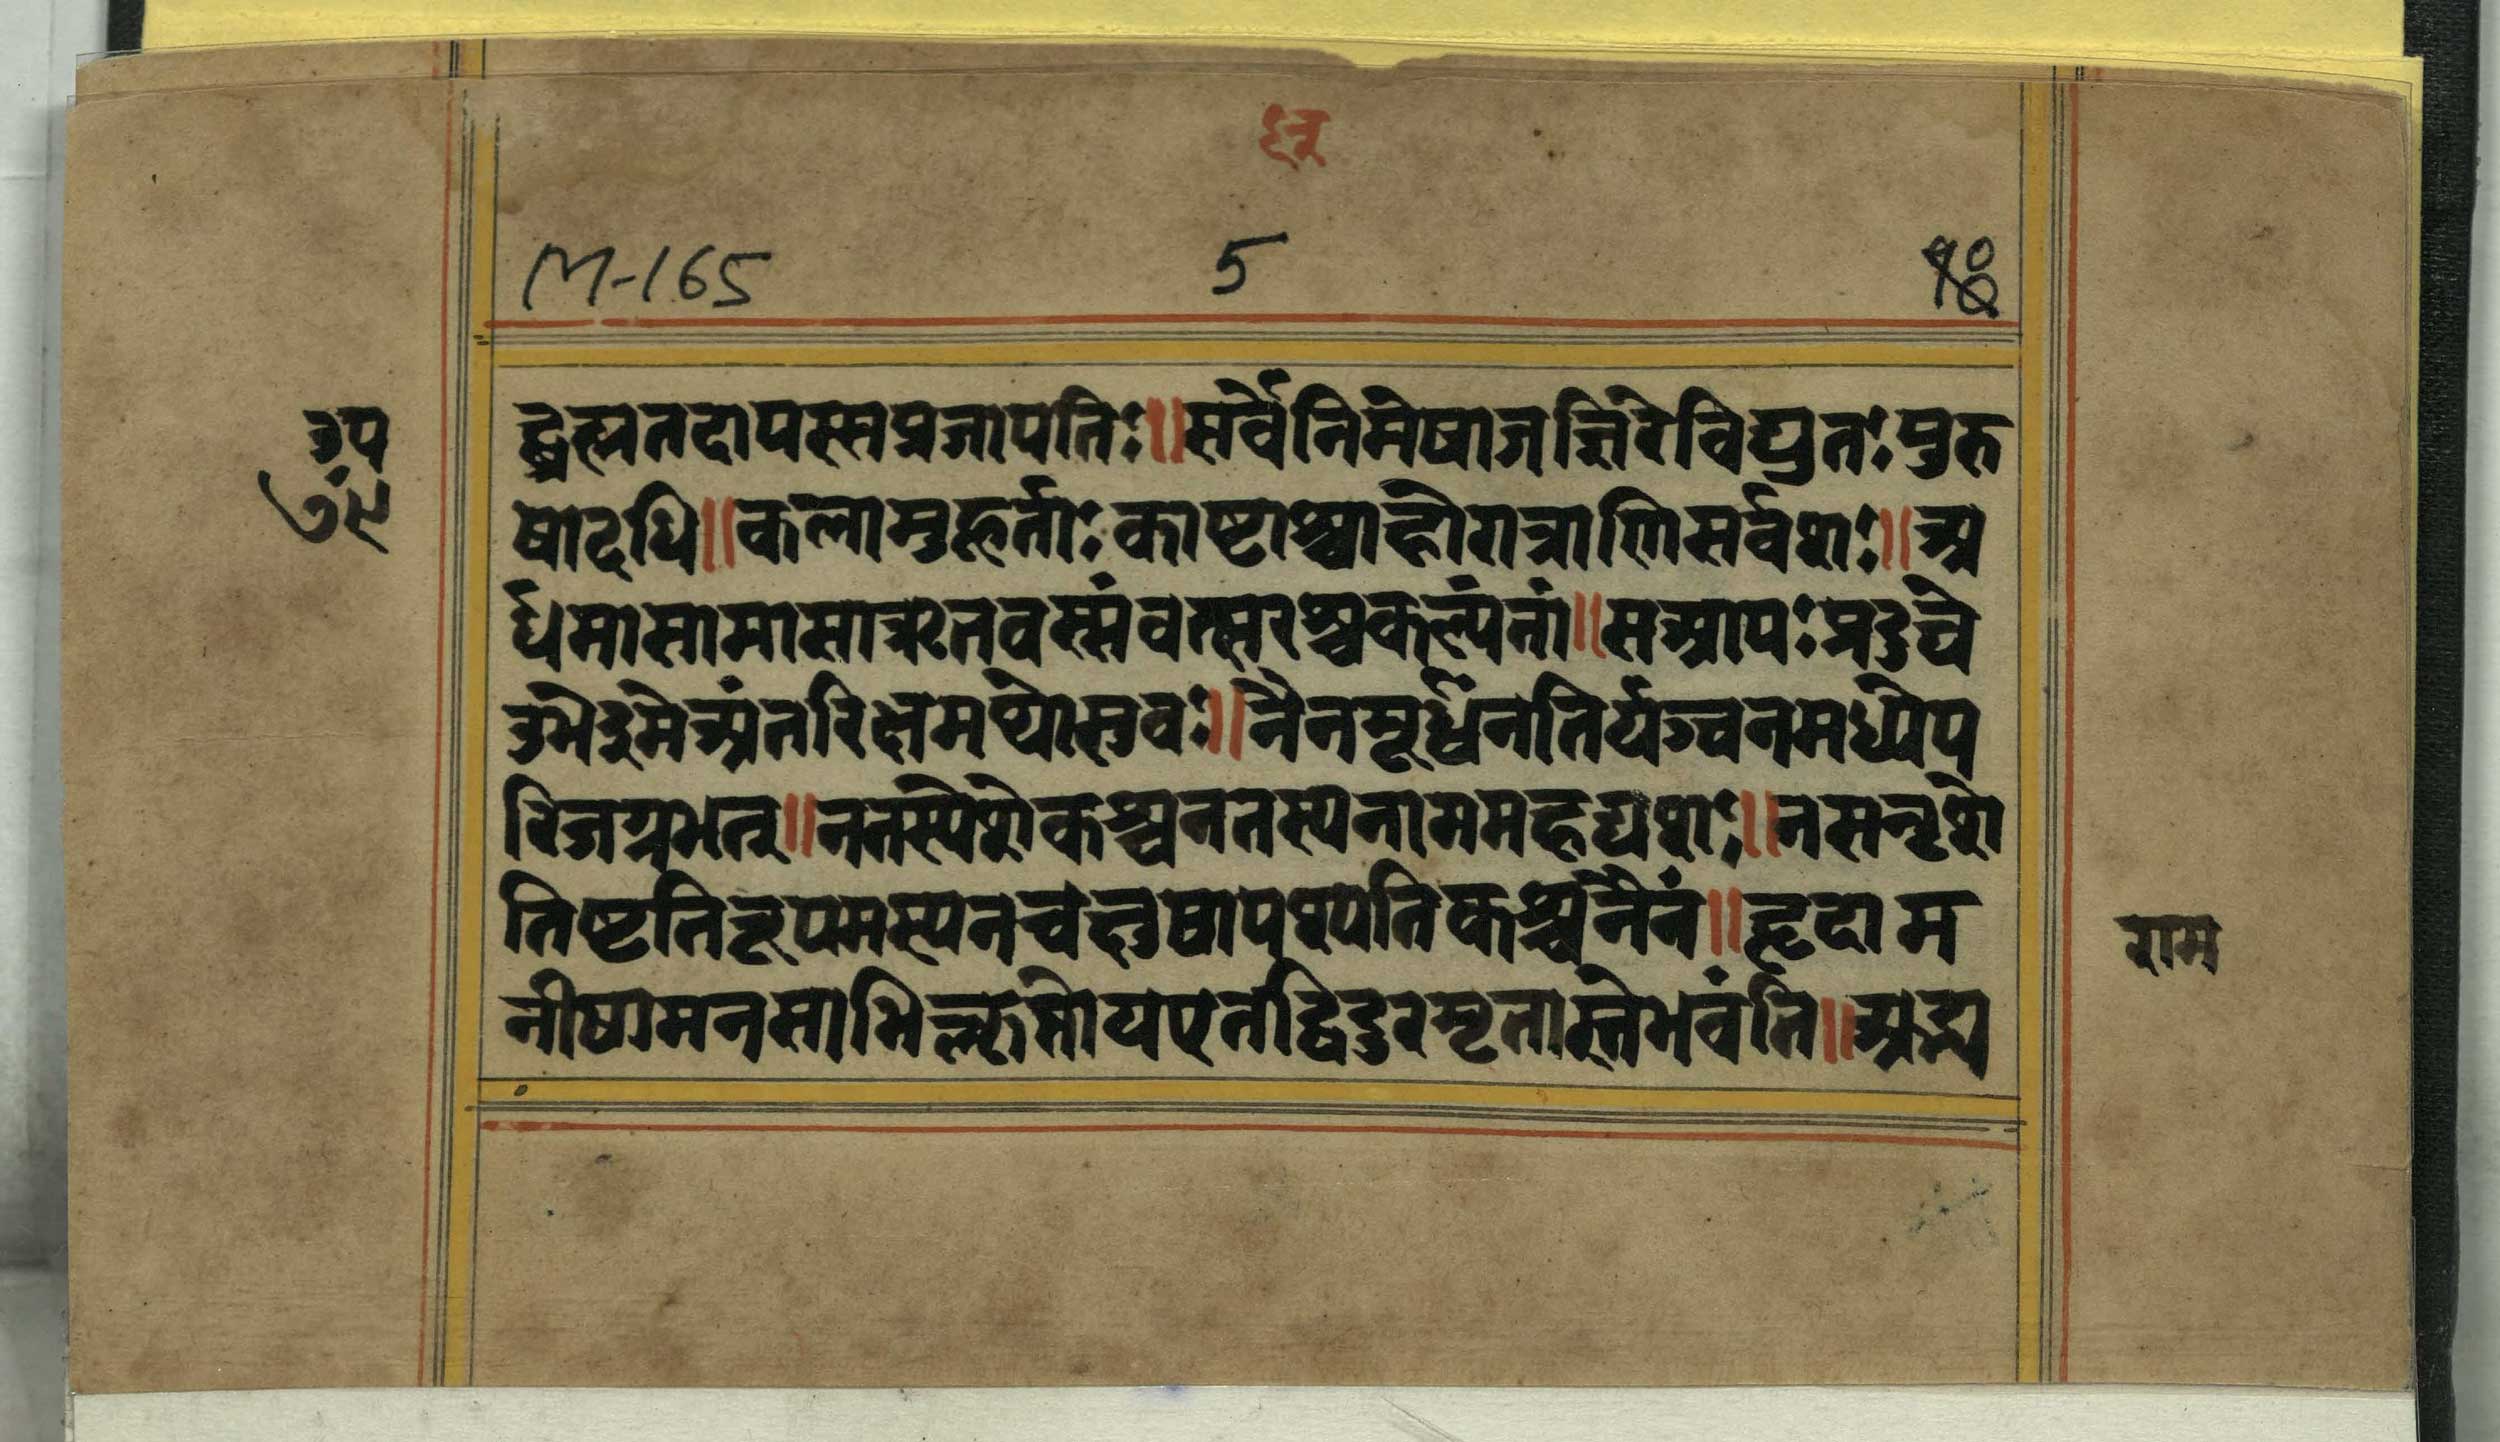 M-165
5
उप
द्ब्रह्मतदापस्सप्रजापतिः॥सर्वेनिमेषाजज्ञिरेविद्युतःपुरु
षादधि॥कलामुहूर्ताःकाष्टाश्चाहोरात्राणिसर्वशः॥अ
र्धमासामासाऋतवस्संवत्सरश्चकल्पंतां॥सआपःप्रदुघे
उभेइमेअंतरिक्षमथोसुवः॥नैनमूर्ध्वंनतिर्यञ्चनमध्येप
रिजग्रभत्॥नतस्येशेकश्चनतस्यनाममहद्यशः॥नसन्दृशे
तिष्टतिरूपमस्यनचक्षुषापश्यतिकश्चनैनं॥हृदाम
राम
नीषामनसाभिक्लृप्तोयएतद्विदुरमृतास्तेभवंति॥अद्भ्य